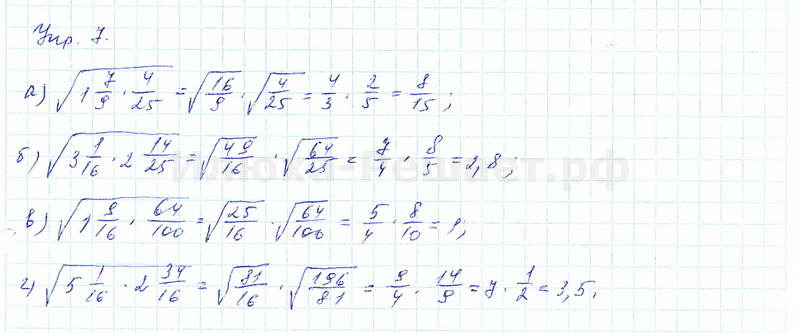 Упр. 7.
а) √(1 7/9 · 4/25) = √(16/9) · √(4/25) = 4/3 · 2/5 = 8/15;
б) √(3 1/16 · 2 14/25) = √(49/16) · √(64/25) = 7/4 · 8/5 = 2,8;
в) √(1 9/16 · 64/100) = √(25/16) · √(64/100) = 5/4 · 8/10 = 1;
г) √(5 1/16 · 2 34/16) = √(81/16) · √(196/81) = 9/4 · 14/9 = 7 · 1/2 = 3,5;